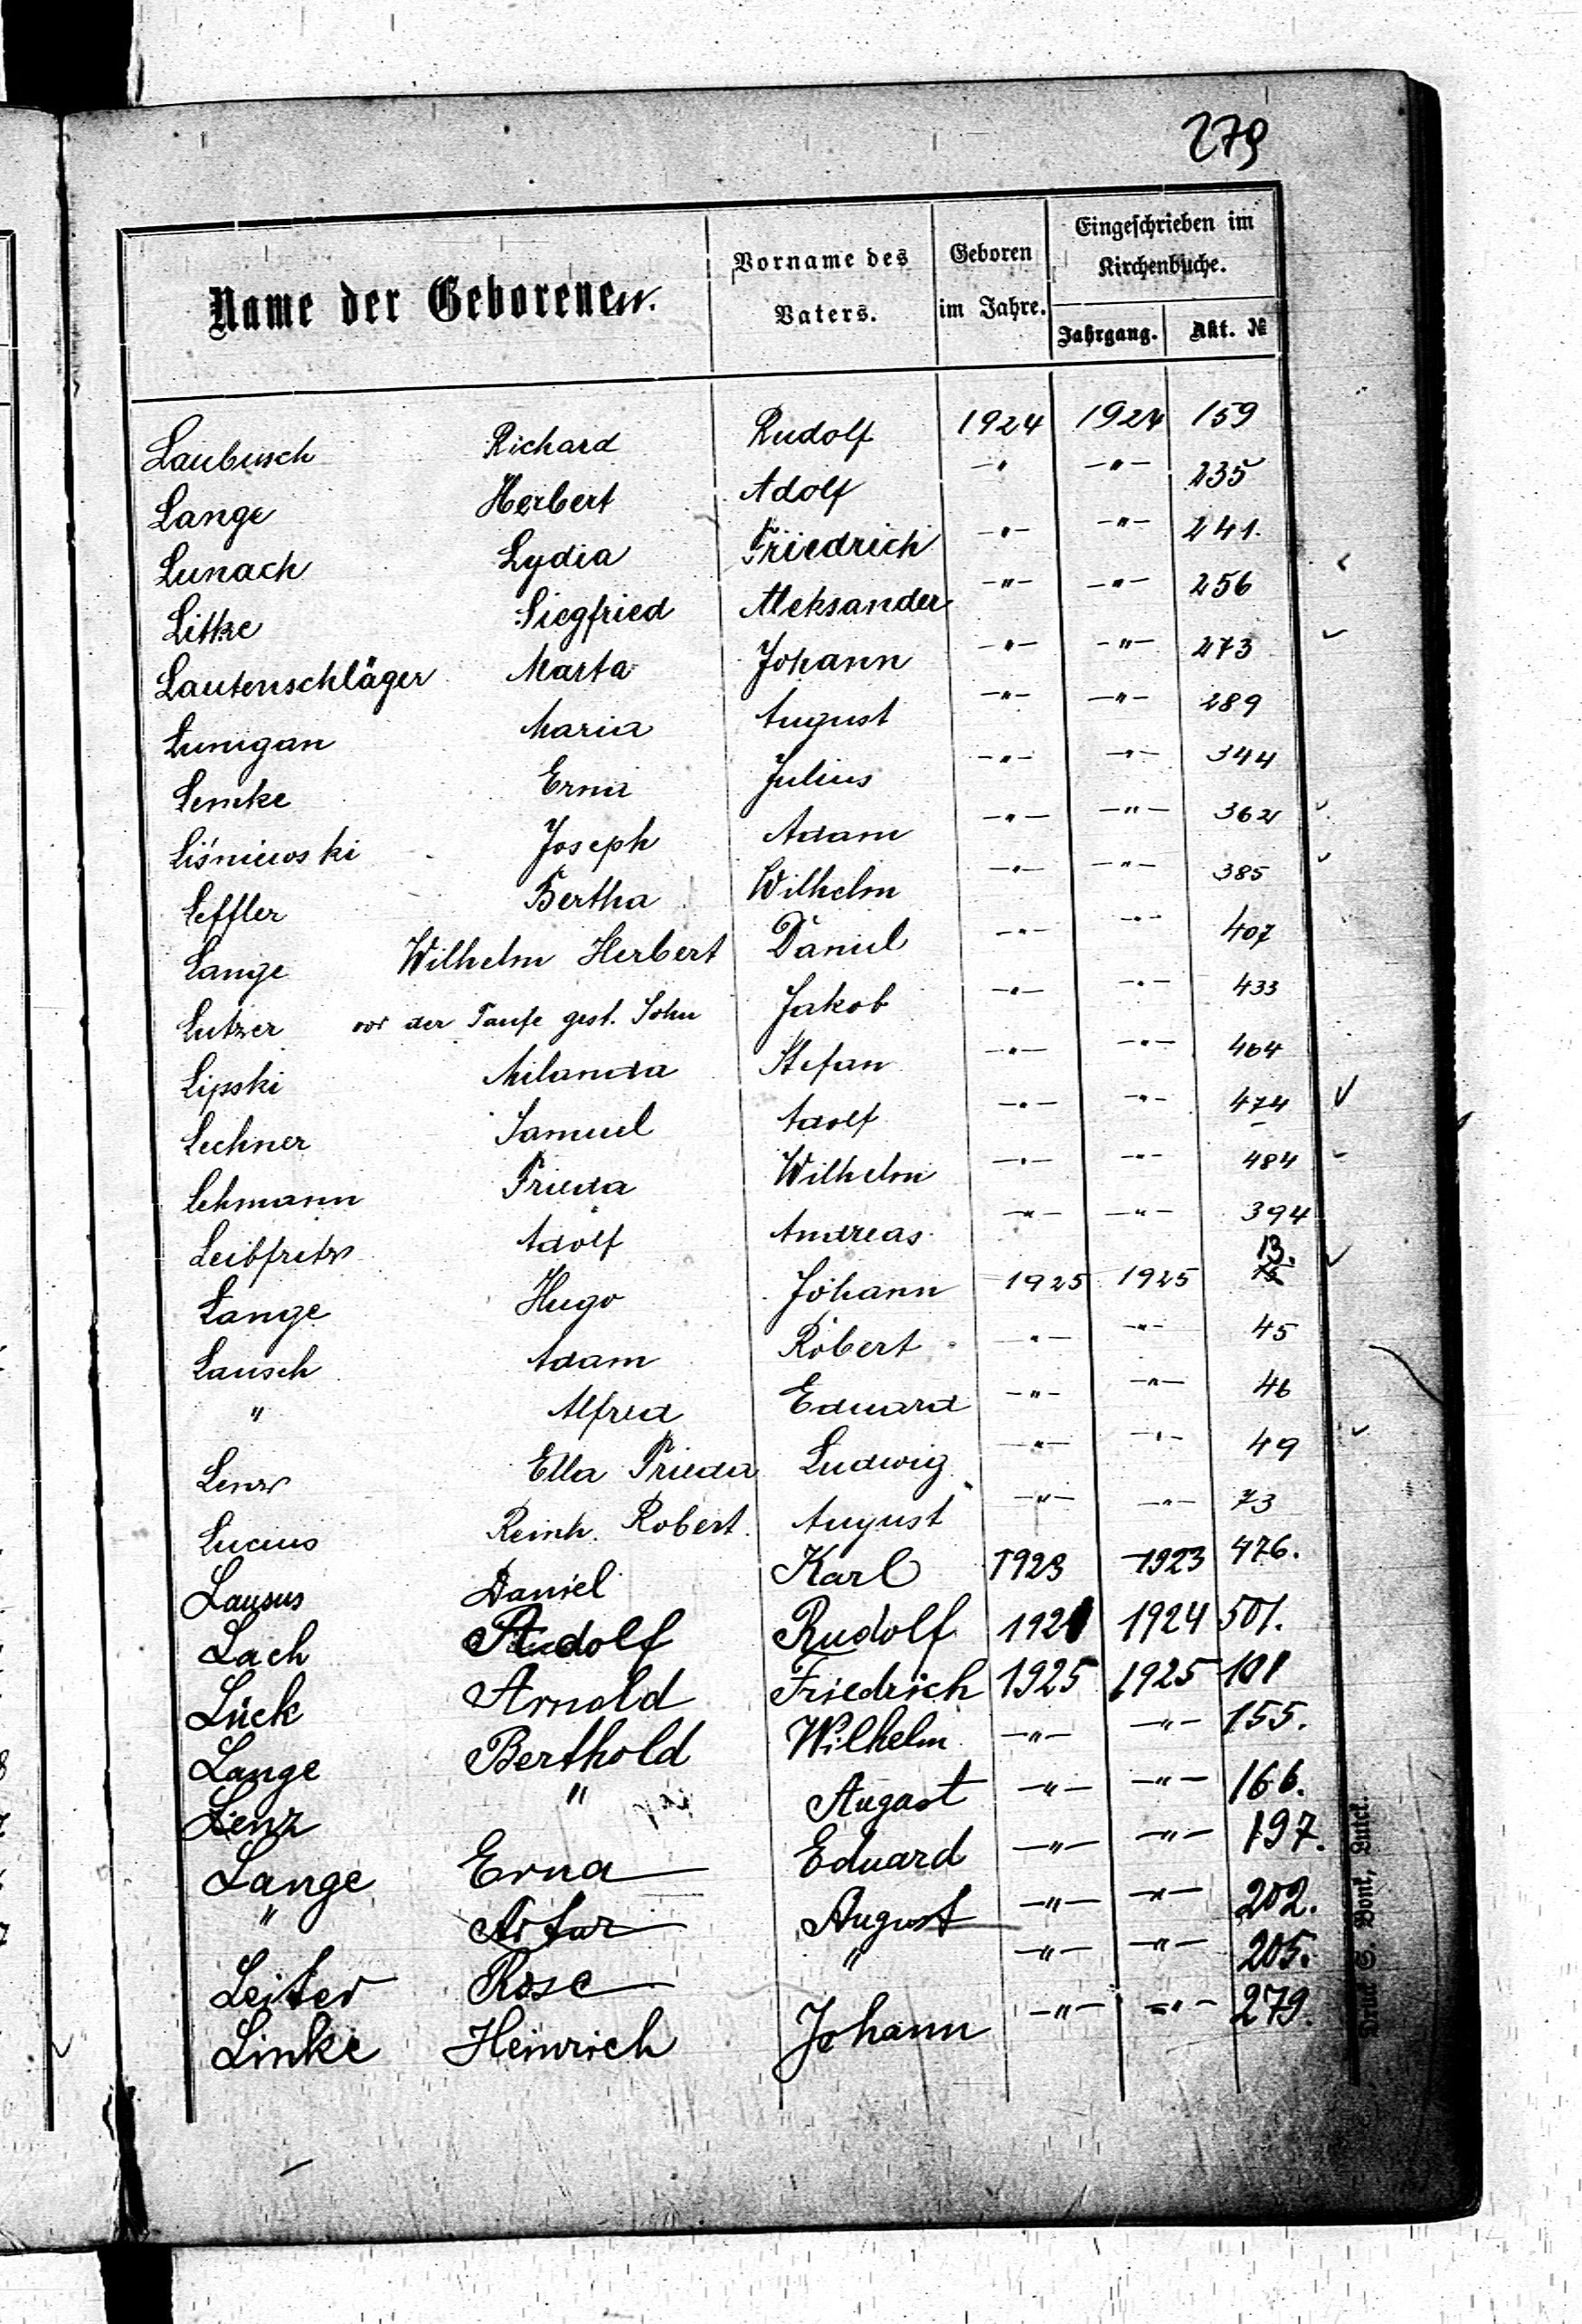 279
Name der Geborenen.
Vorname des Vaters.
Geboren im Jahre.
Eingeschrieben im Kirchenbuche.
Jahrgang.
Akt. №
Laubusch Richard Rudolf 1924 1924 159
Lange Herbert Adolf —"— —"— 235
Lunach Lydia Friedrich —"— —"— 241.
Litke Siegfried Aleksander —"— —"— 256
Lautenschläger Marta Johann —"— —"— 273
Lunigan Maria August —"— —"— 289
Lemke Erna Julius —"— —"— 344
Liśniewski Joseph Adam —"— —"— 362
Leffler Bertha Wilhelm —"— —"— 385
Lange Wilhelm Herbert Daniel —"— —"— 407
Lutzer vor der Taufe gest. Sohn Jakob —"— —"— 433
Lipski Milanda Stefan —"— —"— 464
Lechner Samuel Adolf —"— —"— 474
Lehmann Frieda Wilhelm —"— —"— 484
Leibfritz Adolf Andreas —"— —"— 394
Lange Hugo Johann 1925 1925 13.
Lausch Adam Robert —"— —"— 45
" Alfred Eduard —"— —"— 46
Lenz Ella Frieda Ludwig —"— —"— 49
Lucius Reinh. Robert. August —"— —"— 73
Lausus Daniel Karl 1923 1923 476.
Lach Rudolf 1924 501.
Lück Arnold Friedrich 1925 1925 101
Lange Berthold Wilhelm —"— —"— 155.
Lenz " August —"— —"— 166.
Lange Erna Eduard —"— —"— 197.
" Artur August —"— —"— 202.
Leiter Rose " —"— —"— 205.
Linke Heinrich Johann —"— —"— 279.
Druck S. Bonk, Luck.